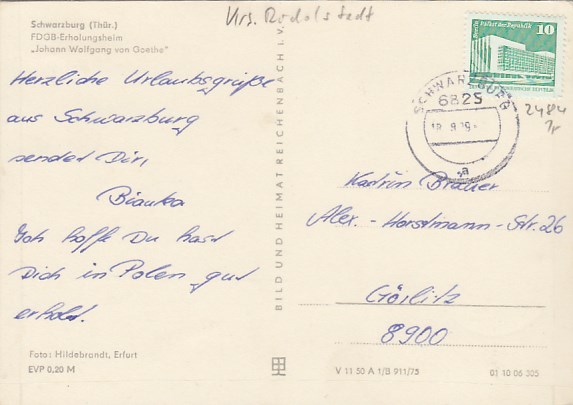 Schwarzburg (Thür.)
FDGB-Erholungsheim
„Johann Wolfgang von Goethe"
Herzliche Urlaubsgrüße
aus Schwarzburg
sendet Dir,
Bianka
Ich hoffe Du hast
Dich in Polen gut
erholt.
Foto: Hildebrandt, Erfurt
EVP 0,20 M
BILD UND HEIMAT REICHENBACH i. V.
Krs. Rudolstadt
10
SCHWARZBURG
6825
a
2484
Katrin Brauer
Alex.-Horstmann-Str. 26
Görlitz
8900
V 11 50 A 1/B 911/75 01 10 06 305